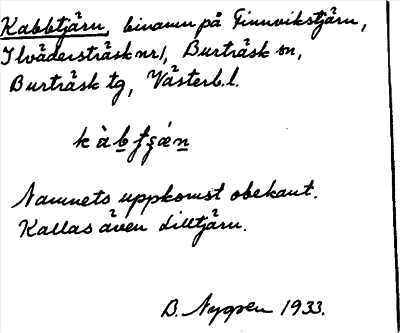 Kabbtjärn, binamn på Finnvikstjärn,
Ilvädersträsk nr1, Burträsk sn,
Burträsk tg, Västerb.l.
Namnets uppkomst obekant.
Kallas även Lilltjärn.
B. Nygren 1933.